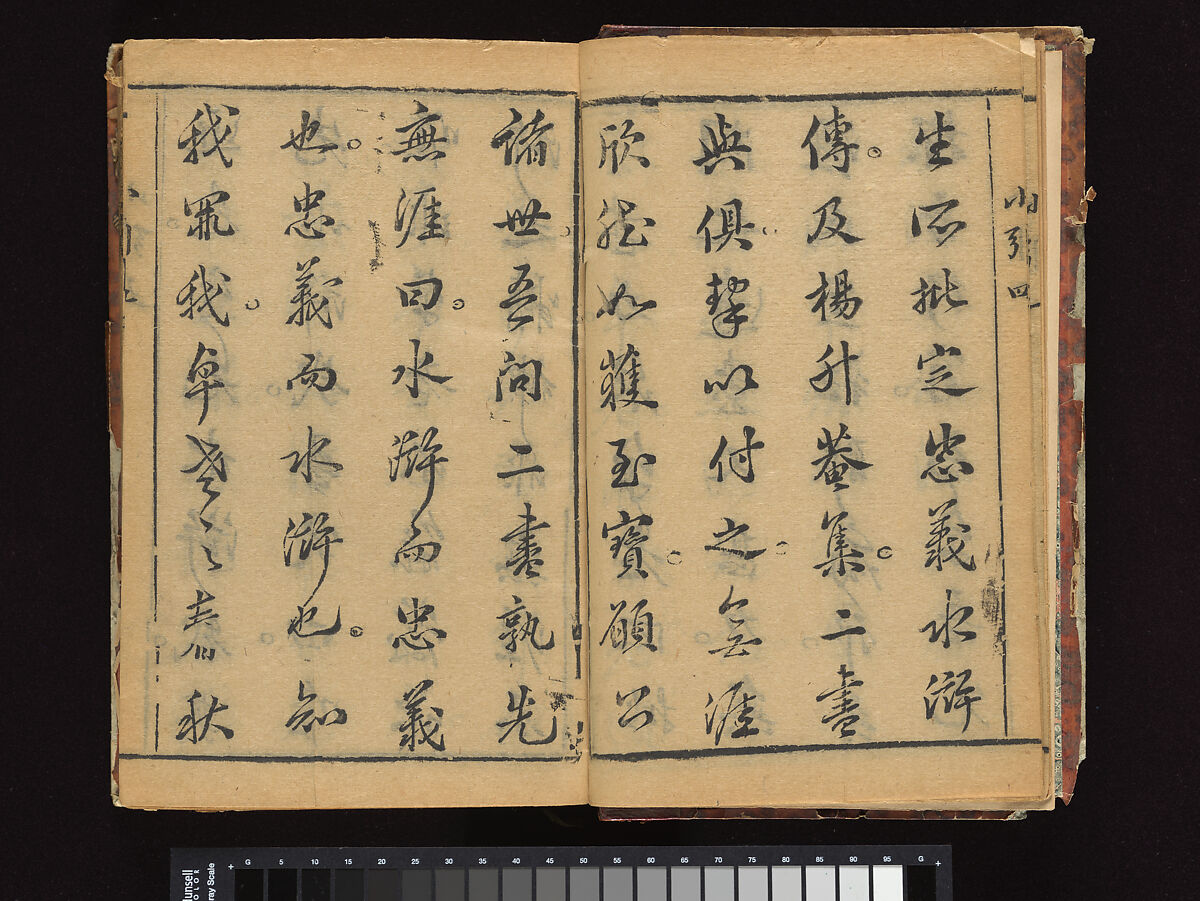 小引 四
生所批定忠義水滸
傳。及楊升菴集。二書
與俱。挈以付之。無涯
欣然如獲至寶。願公
諸世。吾問二書孰先
無涯曰。水滸而忠義
也。忠義而水滸也。知
我罪我。卓老之春秋
G 5 10 15 20 25 30 35 40 45 50 55 60 65 70 75 80 85 90 95 G